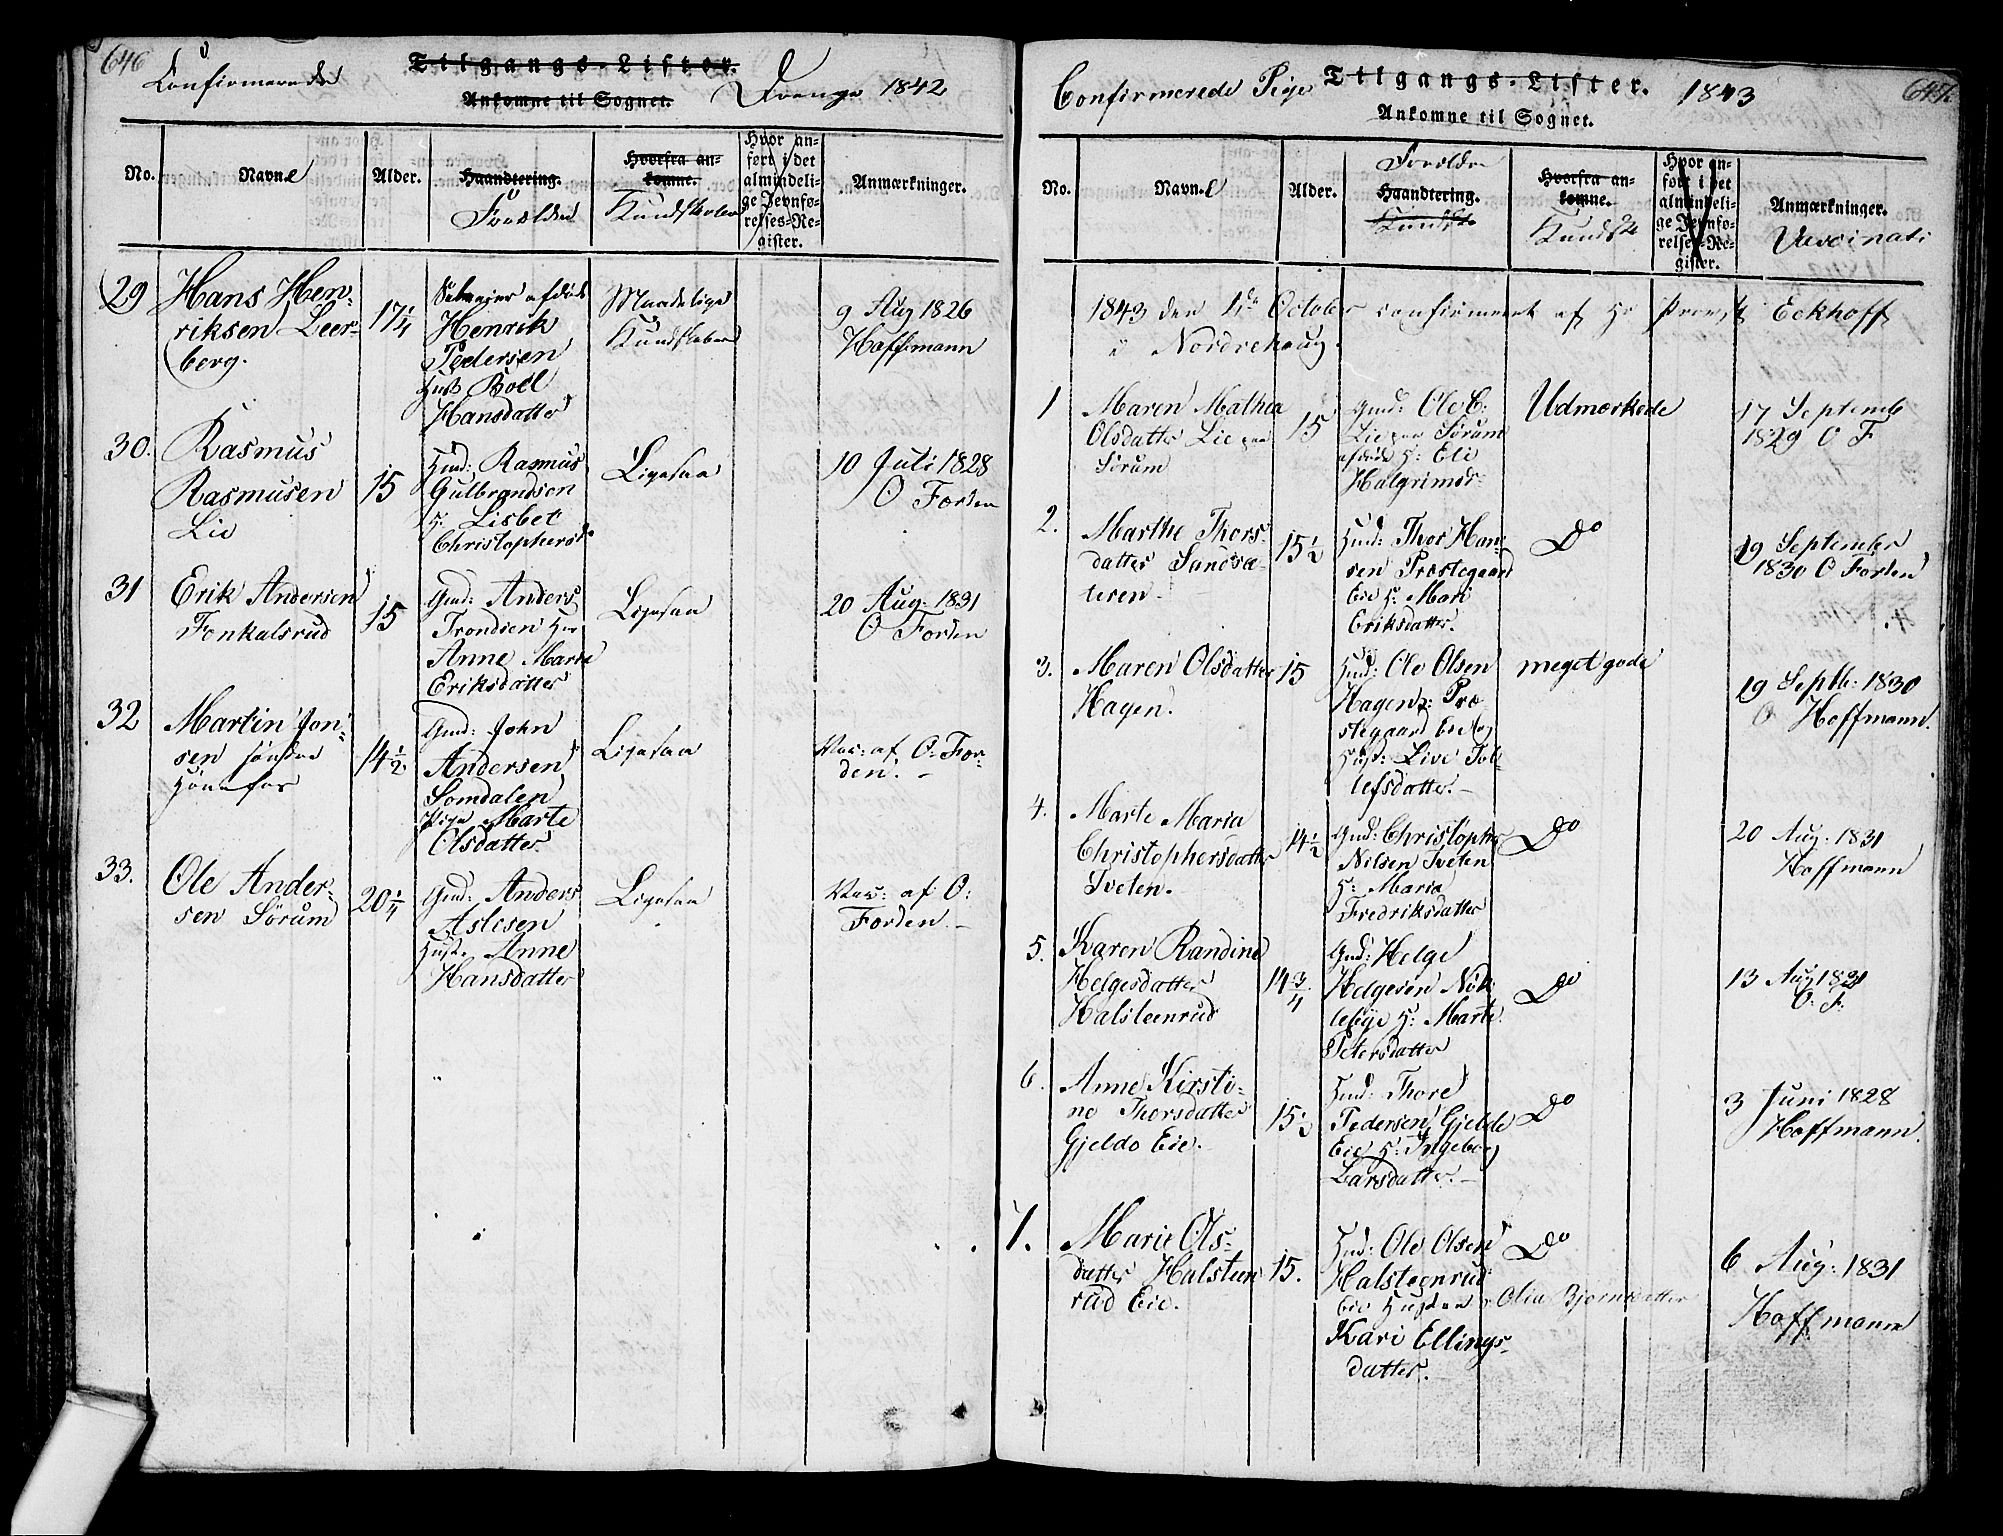 646
Confirmerede
Tilgangs-Lister.
Ankomne til Sognet.
Drenge 1842
No.
Navne
Alder.
Haandtering.
Forældre
Hvorfra an-
komne.
Kundskaber
Hvor an-
ført i det
almindeli-
ge Jevnfø-
relses-Re-
gister.
Anmærkninger.
29
Hans Hen-
riksen Leer-
berg.
17 1/4
Selveier afdøde
Henrik
Pedersen
Hust Boel
Hansdatter
Maadelige
Kundskaber
9 Aug 1826
Hoffmann
30.
Rasmus
Rasmusen
Lie
15
Huud: Rasmus
Gulbrandsen
H: Lisbet
Christophersd.
Ligesaa
10 Juli 1828
O Forden
31
Erik Andersen
Fonkalsrud
15
Gmd: Anders
Trondsen
Anne Maria
Eriksdatter
Ligesaa
20 Aug: 1831
O Forden
32
Martin Jon-
sen søndre
Hønefos
14 1/2
Gmd: John
Andersen
Somdalen
Pige Marte
Olsdatter
Ligesaa
Vac: af O: For-
den. -
33.
Ole Ander-
sen Sørum
20 1/4
Gmd: Anders
Aslesen
Hust. Anne
Hansdatter
Ligesaa
Vac: af O:
Forden. -
Confirmerede Pige
Tilgangs-Lister.
Ankomne til Sognet.
1843
647.
No.
Navne
Alder.
Forældre
Haandtering.
Kundsk
Hvorfra an-
komne.
Kundsk
Hvor an-
ført i det
almindeli-
ge Jevnfø-
relses-Re-
gister.
Anmærkninger.
Vaccinati
1843 den 1de October confirmeret af Hr Provst Eckhoff
i Nordrehaug.
1
Maren Mathea
Olsdatter Lie
Sørum
15
Gmd: Ole C:
Lie Sørum
afdøde H: Eli
Halgrimsd:
Udmærkede
17 Septemb
1829 O F
2.
Marthe Thors-
datter Sandsæ-
teren
15 1/2
Huud: Thor Han-
sen Præstegaard
Eie H: Mari
Eriksdatter.
Do
19 September
1830 O Forden
3.
Maren Olsdatter
Hagen.
15
Huud: Ole Olsen
Hagen Præ
stegaard Eie og
Hust: Live Tol-
lefsdatter. -
meget gode
19 Septb: 1830
Hoffmann.
4.
Marte Maria
Christophersdatter
Tveten.
14 1/2
Gmd: Christopher
Nilsen Tveten
H: Maria
Fredriksdatter
Do
20 Aug: 1831
Hoffmann
5.
Karen Randine
Helgesdatter
Halsteenrud
14 3/4
Gmd: Helge
Helgesen Nok-
lebye H: Marte
Petersdatter
Do
13 Aug 1831
O: F:
6.
Anne Kirsti-
ne Thorsdatter
Gjeldo Eie.
15 1/2
Huud: Thore
Pedersen Gjelde
Eie H: Ingeborg
Larsdatter. -
Do
3 Juni 1828
Hoffmann.
7.
Marie Ols-
datter Halsteen-
rud Eie.
15.
Huud: Ole Olsen
Halsteenrud
Eie Hustru Olia Bjornsdatter
Kari Ellings-
datter. -
Do
6 Aug: 1831
Hoffmann